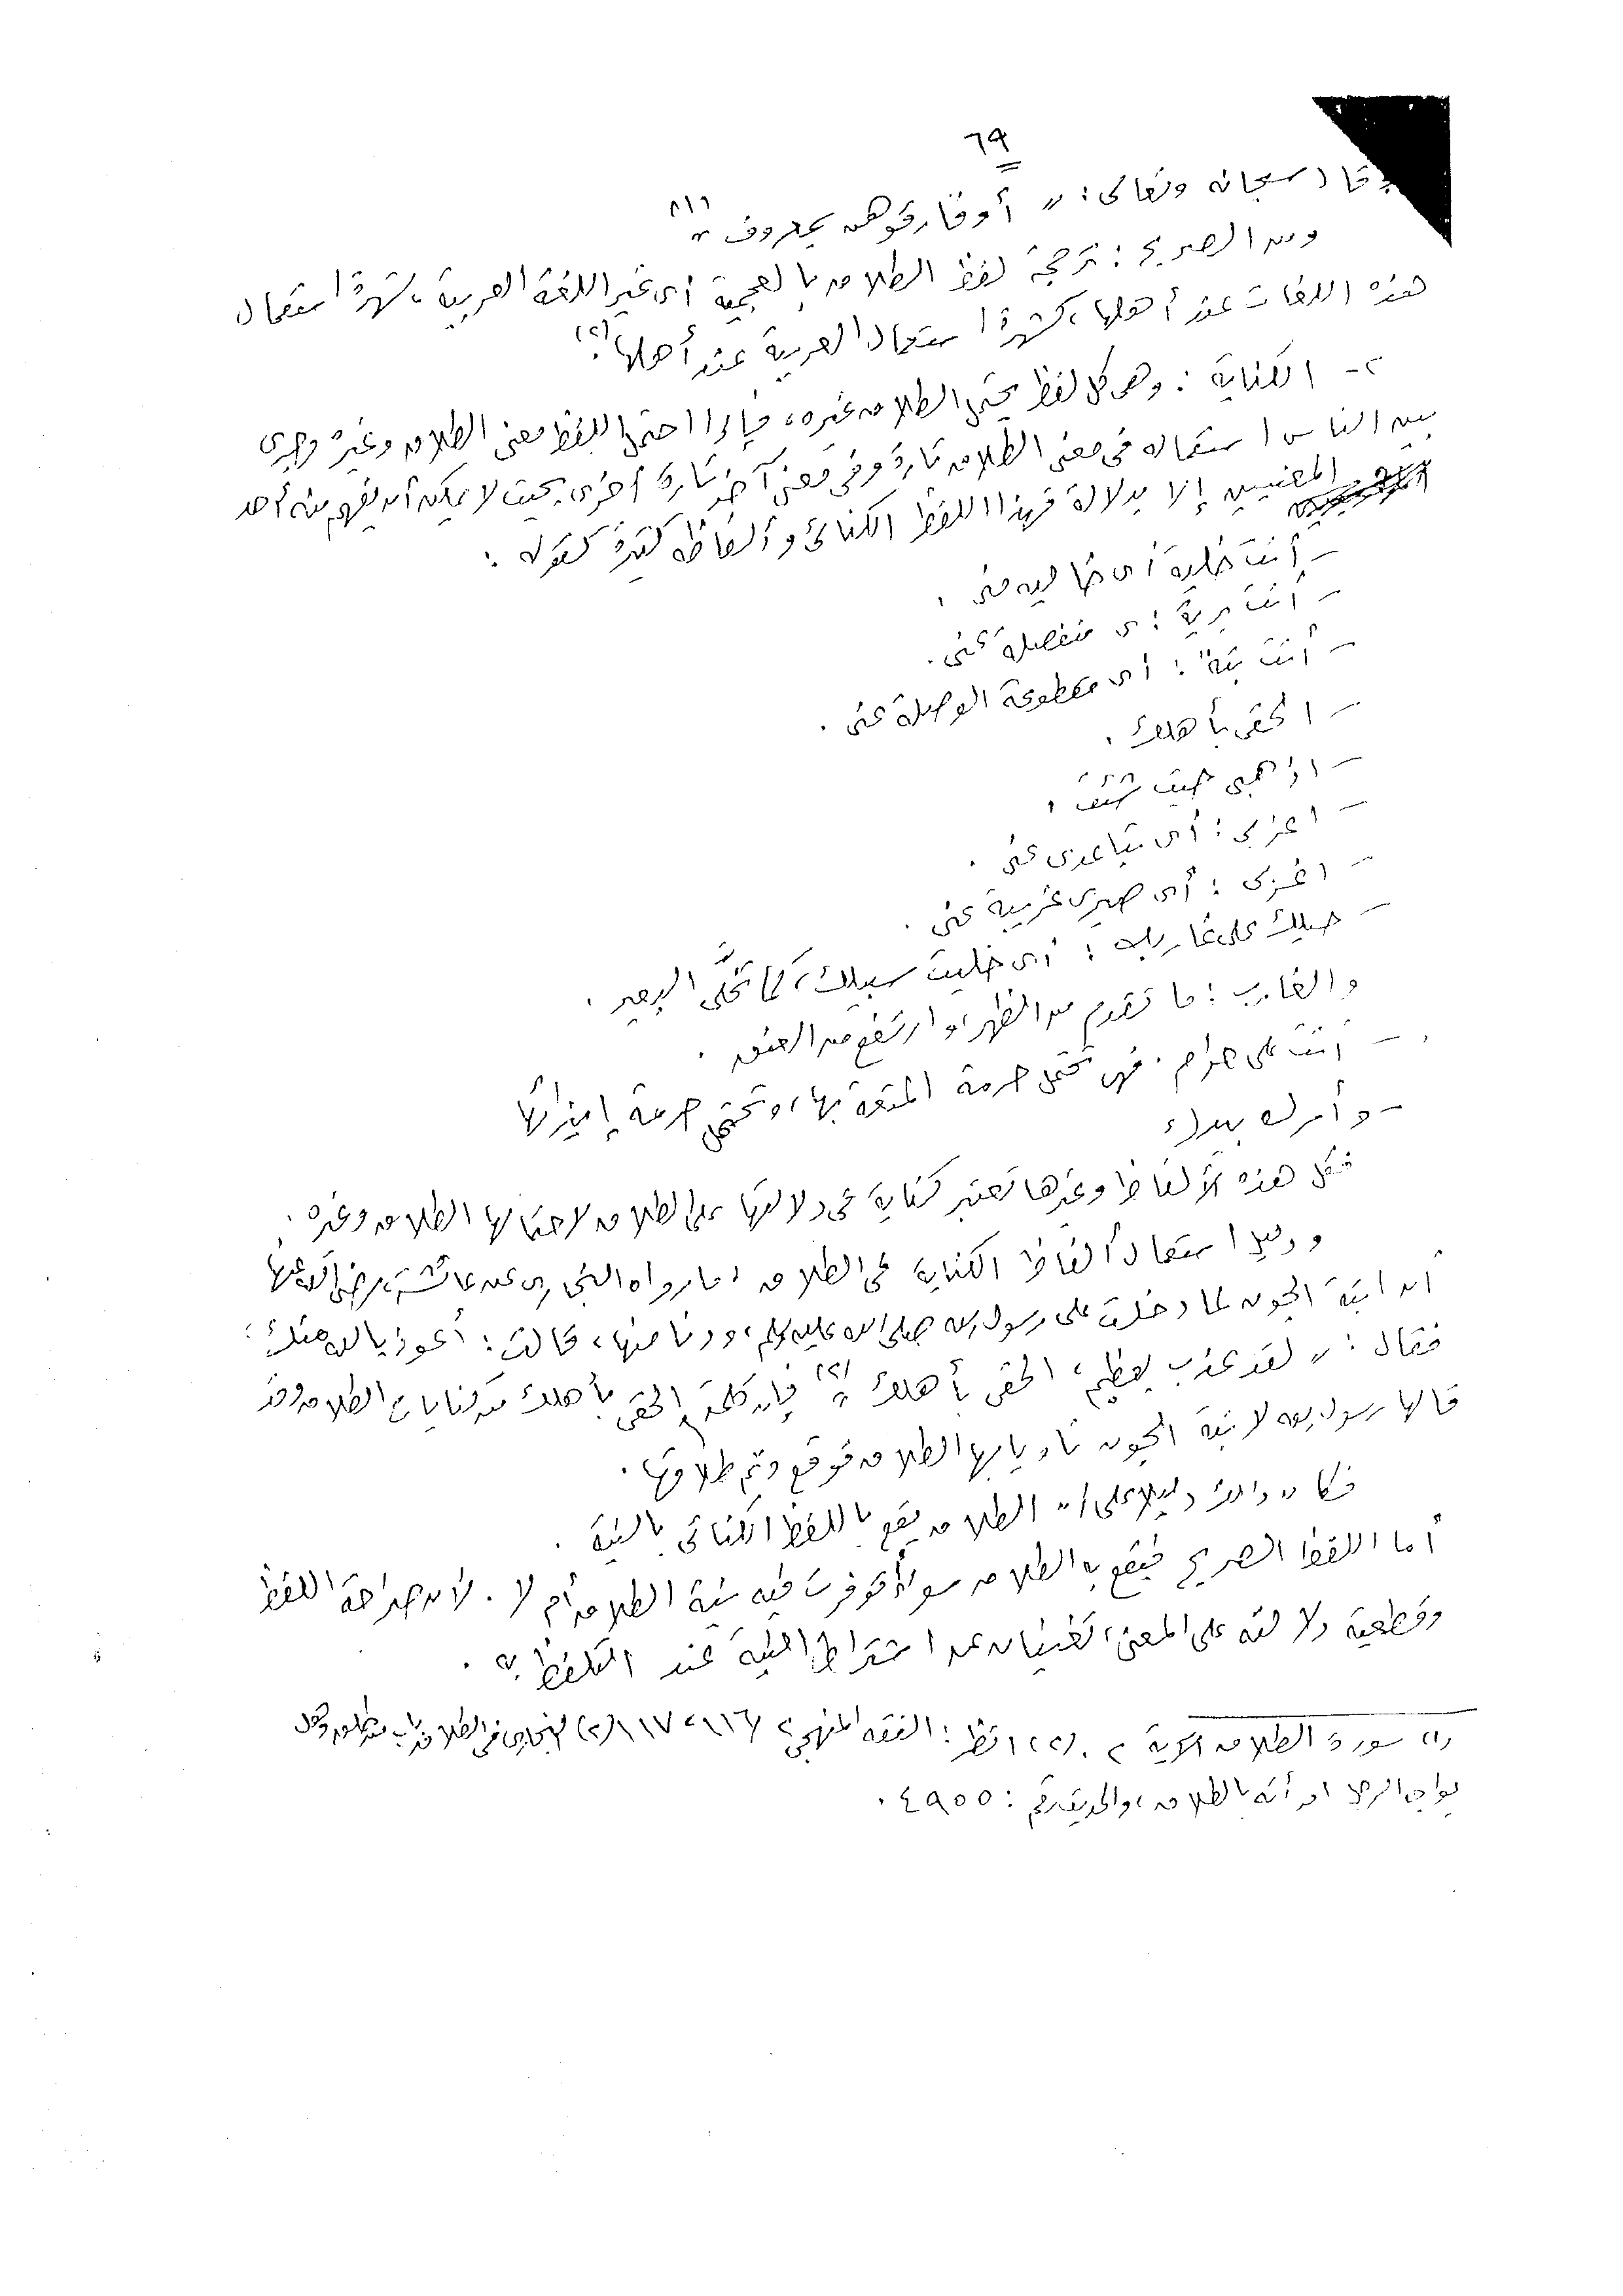 ٦٩
وقال سبحانه وتعالى: « أو فارقوهن بمعروف » (١)
ومن الصريح: ترجمة لفظ الطلاق بالعجمية أى غير اللغة العربية، لشهرة استعمال
هذه اللغات عند أهلها، كشهرة استعمال العربية عند أهلها (٢).
٢- الكناية: وهى كل لفظ يحتمل الطلاق وغيره، فإذا احتمل اللفظ معنى الطلاق وغيره وجرى
بين الناس استعماله فى معنى الطلاق تارة وفى معنى آخر تارة أخرى بحيث لا يمكن أن يفهم منه أحد
المعنيين إلا بدلالة فهذا اللفظ الكنائى وألفاظه كثيرة كقوله:
- أنت خلية أى خالية منى.
- أنت برية: أى منفصلة عنى.
- أنت بتة: أى مقطوعة الوصلة عنى.
- الحقى بأهلك.
- اذهبى حيث شئت.
- اعزبى: أى تباعدى عنى.
- اغربى: أى صيرى غريبة عنى.
- حبلك على غاربك: أى خليت سبيلك، كما يخلَّى البعير.
والغارب: ما تقدم من الظهر، وارتفع من العنق.
- أنت على حرام. فهى تحتمل حرمة المتعة بها، وتحتمل حرمة إيذائها
- وأمرك بيدك
فكل هذه الألفاظ وغيرها تعتبر كناية فى دلالتها على الطلاق لاحتمالها الطلاق وغيره.
ودليل استعمال ألفاظ الكناية فى الطلاق، ما رواه البخارى عن عائشة رضى الله عنها
أن ابنة الجون لما دخلت على رسول الله صلى الله عليه وسلم، ودنا منها، قالت: أعوذ بالله منك؛
فقال: « لقد عذت بعظيم، الحقى بأهلك » (٢) فإن كلمة الحقى بأهلك من كنايات الطلاق وقد
قالها رسول الله لابنة الجون ناويا بها الطلاق فوقع وتم طلاقها.
فكان ذلك دليلا على أن الطلاق يقع باللفظ الكنائى بالنية.
أما اللفظ الصريح فيقع به الطلاق سواء أتوفرت فيه نية الطلاق أم لا. لأن صراحة اللفظ
وقطعية دلالته على المعنى، تغنيان عن اشتراط النية عند التلفظ به.
(١) سورة الطلاق الآية ٢. (٢) انظر: الفقه المنهجى ٢/١١٦، ١١٧ (٢) البخارى فى الطلاق باب من طلق وهل
يواجه الرجل امرأته بالطلاق، والحديث رقم: ٤٩٥٥.